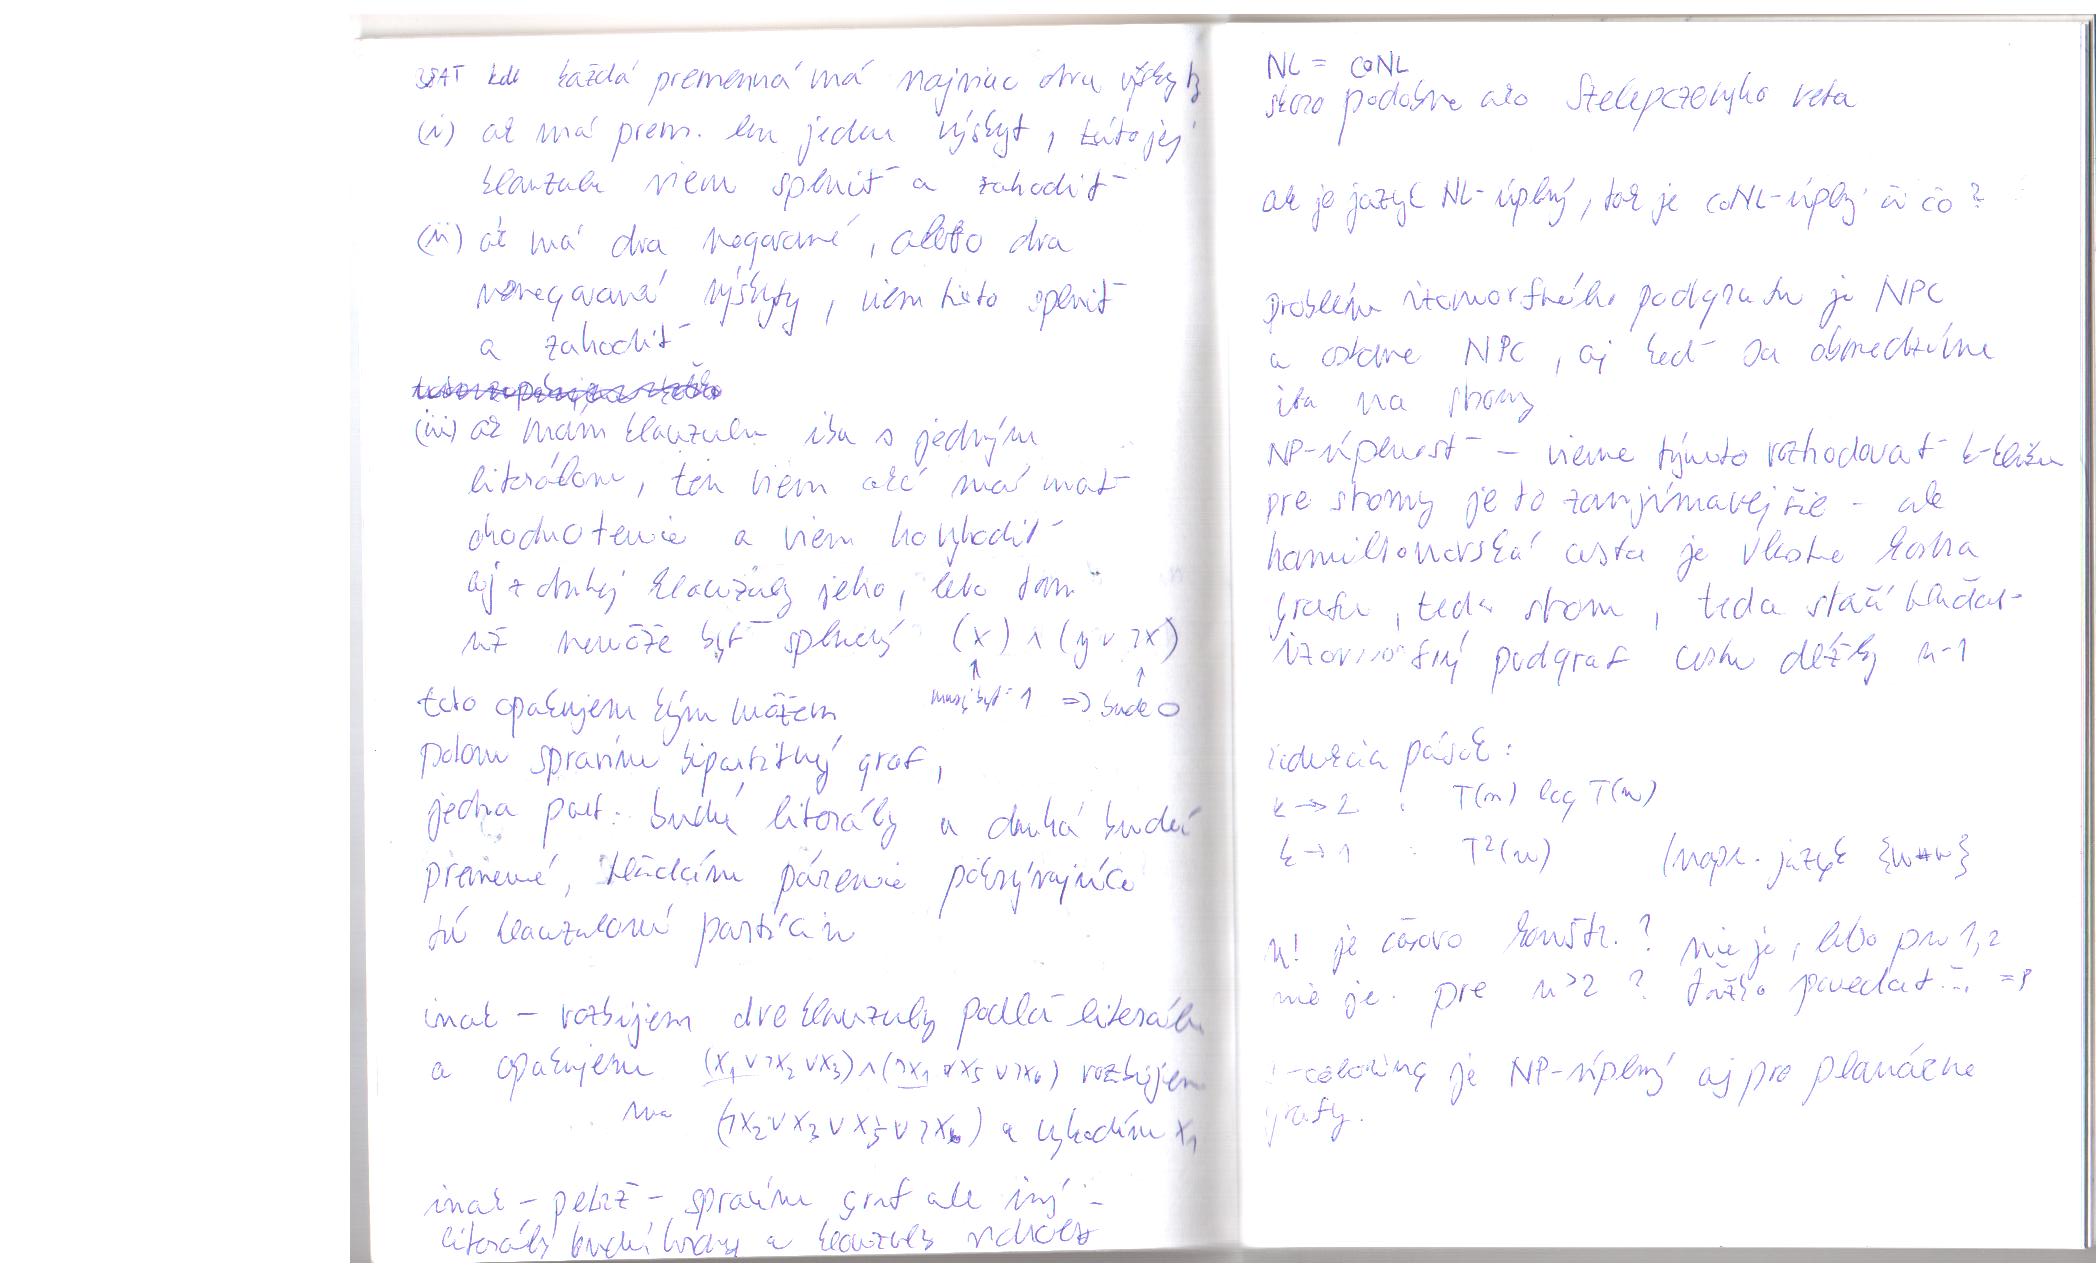 3SAT kde každá premenná má najviac dva výskyty
(i) ak má prem. len jeden výskyt, túto jej
klauzulu viem splniť a zahodiť
(ii) ak má dva negované, alebo dva
nenegované výskyty, viem tieto splniť
a zahodiť
(iii) ak mám klauzulu iba s jedným
literálom, ten viem aké má mať
ohodnotenie a viem ho vyhodiť
aj z druhej klauzuly jeho, lebo tam
už nemôže byť splnený (x) ∧ (y ∨ ¬x)
musí byť 1 => bude 0
toto opakujem kým môžem
potom spravím bipartitný graf,
jedna part. budú literály a druhá budú
premenné, hľadám párenie pokrývajúce
tú klauzulovú partíciu
inak – rozbijem dve klauzuly podľa literálu
a opakujem (x₁ ∨ ¬x₂ ∨ x₃) ∧ (¬x₁ ∨ x₅ ∨ ¬x₆) rozbijem
na (¬x₂ ∨ x₃ ∨ x₅ ∨ ¬x₆) a vyhodím x₁
inak – – spravím graf ale iný –
literály budú hrany a klauzuly vrcholy
NL = coNL
skoro podobne ako Szelepczényho veta
ak je jazyk NL-úplný, tak je coNL-úplný či čo?
problém izomorfného podgrafu je NPC
a ostane NPC, aj keď sa obmedzíme
iba na stromy
NP-úplnosť – vieme týmto rozhodovať k-kliku
pre stromy je to zaujímavejšie – ale
hamiltonovská cesta je vlastne kostra
grafu, teda strom, teda stačí hľadať
izomorfný podgraf cestu dĺžky n-1
redukcia pások:
k → 2 : T(n) log T(n)
k → 1 : T²(n) (napr. jazyk {w#w}
n! je časovo konštr.? nie je, lebo pre 1,2
nie je. pre n>2? ťažko povedať... =P
-coloring je NP-úplný aj pre planárne
grafy.